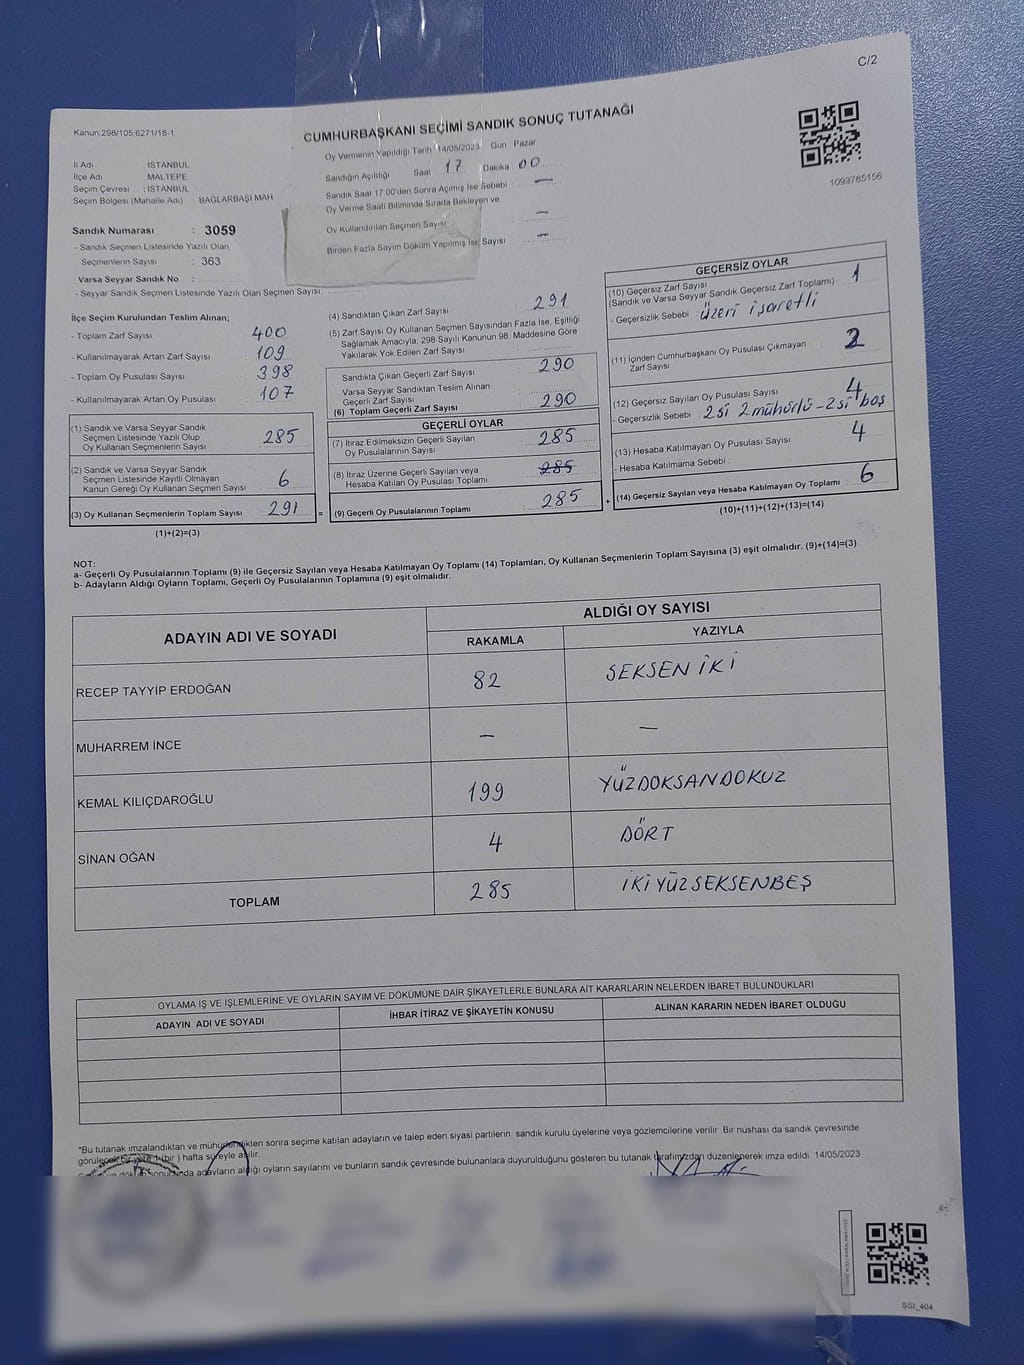 C/2
Kanun;298/105,6271/18-1
CUMHURBAŞKANI SEÇİMİ SANDIK SONUÇ TUTANAĞI
1093785156
İl Adı : İSTANBUL
İlçe Adı : MALTEPE
Seçim Çevresi : İSTANBUL
Seçim Bölgesi (Mahalle Adı) BAĞLARBAŞI MAH
Sandık Numarası : 3059
- Sandık Seçmen Listesinde Yazılı Olan
Seçmenlerin Sayısı : 363
Varsa Seyyar Sandık No :
- Seyyar Sandık Seçmen Listesinde Yazılı Olan Seçmen Sayısı:
Oy Vermenin Yapıldığı Tarih 14/05/2023 Gün : Pazar
Sandığın Açıldığı Saat 17 Dakika : 00
Sandık Saat 17:00'den Sonra Açımış İse Sebebi : —
Oy Verme Saati Bitiminde Sırada Bekleyen ve
Oy Kullandırılan Seçmen Sayısı : —
Birden Fazla Sayım Döküm Yapılmış İse Sayısı : —
İlçe Seçim Kurulundan Teslim Alınan;
- Toplam Zarf Sayısı : 400
- Kullanılmayarak Artan Zarf Sayısı : 109
- Toplam Oy Pusulası Sayısı : 398
- Kullanılmayarak Artan Oy Pusulası : 107
(1) Sandık ve Varsa Seyyar Sandık
Seçmen Listesinde Yazılı Olup
Oy Kullanan Seçmenlerin Sayısı : 285
(2) Sandık ve Varsa Seyyar Sandık
Seçmen Listesinde Kayıtlı Olmayan
Kanun Gereği Oy Kullanan Seçmen Sayısı : 6
(3) Oy Kullanan Seçmenlerin Toplam Sayısı : 291 =
(1)+(2)=(3)
(4) Sandıktan Çıkan Zarf Sayısı : 291
(5) Zarf Sayısı Oy Kullanan Seçmen Sayısından Fazla İse, Eşitliği
Sağlamak Amacıyla, 298 Sayılı Kanunun 98. Maddesine Göre
Yakılarak Yok Edilen Zarf Sayısı :
Sandıkta Çıkan Geçerli Zarf Sayısı : 290
Varsa Seyyar Sandıktan Teslim Alınan
Geçerli Zarf Sayısı :
(6) Toplam Geçerli Zarf Sayısı : 290
GEÇERLİ OYLAR
(7) İtiraz Edilmeksizin Geçerli Sayılan
Oy Pusulalarının Sayısı : 285
(8) İtiraz Üzerine Geçerli Sayılan veya
Hesaba Katılan Oy Pusulası Toplamı : 285
(9) Geçerli Oy Pusulalarının Toplamı : 285 +
GEÇERSİZ OYLAR
(10) Geçersiz Zarf Sayısı
(Sandık ve Varsa Seyyar Sandık Geçersiz Zarf Toplamı) : 1
- Geçersizlik Sebebi : üzeri işaretli
(11) İçinden Cumhurbaşkanı Oy Pusulası Çıkmayan
Zarf Sayısı : 2
(12) Geçersiz Sayılan Oy Pusulası Sayısı : 4
- Geçersizlik Sebebi : 2 si 2 mühürlü - 2 si boş
(13) Hesaba Katılmayan Oy Pusulası Sayısı : 4
- Hesaba Katılmama Sebebi :
(14) Geçersiz Sayılan veya Hesaba Katılmayan Oy Toplamı : 6
(10)+(11)+(12)+(13)=(14)
NOT:
a- Geçerli Oy Pusulalarının Toplamı (9) ile Geçersiz Sayılan veya Hesaba Katılmayan Oy Toplamı (14) Toplamları, Oy Kullanan Seçmenlerin Toplam Sayısına (3) eşit olmalıdır. (9)+(14)=(3)
b- Adayların Aldığı Oyların Toplamı, Geçerli Oy Pusulalarının Toplamına (9) eşit olmalıdır.
ADAYIN ADI VE SOYADI ALDIĞI OY SAYISI
RAKAMLA YAZIYLA
RECEP TAYYİP ERDOĞAN 82 SEKSEN İKİ
MUHARREM İNCE — —
KEMAL KILIÇDAROĞLU 199 YÜZDOKSANDOKUZ
SİNAN OĞAN 4 DÖRT
TOPLAM 285 İKİ YÜZ SEKSENBEŞ
OYLAMA İŞ VE İŞLEMLERİNE VE OYLARIN SAYIM VE DÖKÜMÜNE DAİR ŞİKAYETLERLE BUNLARA AİT KARARLARIN NELERDEN İBARET BULUNDUKLARI
ADAYIN ADI VE SOYADI İHBAR İTİRAZ VE ŞİKAYETİN KONUSU ALINAN KARARIN NEDEN İBARET OLDUĞU
*Bu tutanak imzalandıktan ve mühürlendikten sonra seçime katılan adayların ve talep eden siyasi partilerin sandık kurulu üyelerine veya gözlemcilerine verilir .Bir nushası da sandık çevresinde
görülecek bir yere 1 (bir ) hafta süreyle asılır.
adayların aldığı oyların sayılarını ve bunların sandık çevresinde bulunanlara duyurulduğunu gösteren bu tutanak tarafımızdan düzenlenerek imza edildi. 14/05/2023
SSI_404